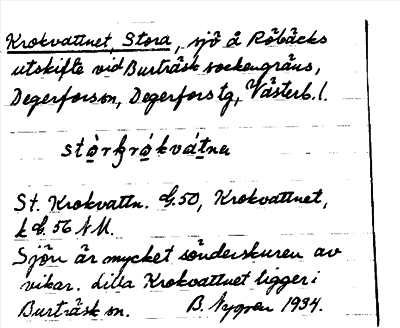 Krokvattnet, Stora, sjö å Röbäcks
utskifte vid Burträsk sockengräns,
Degerfors sn, Degerfors tg, Västerb. l.
stò̱rkrò̱kvát̲na
St. Krokvattn. G.50, Krokvattnet,
k G. 56 N M.
Sjön är mycket sönderskuren av
vikar. Lilla Krokvattnet ligger i
Burträsk sn. B. Nygren 1934.